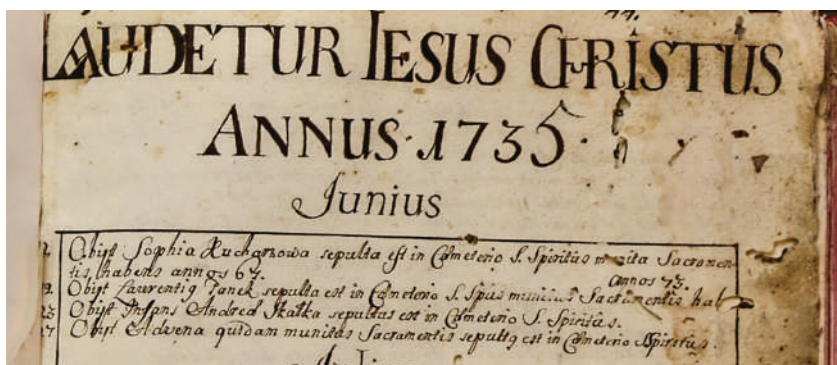 LAUDETUR IESUS CHRISTUS
ANNUS · 1735 ·
Junius
Obijt Sophia Kucharzowa sepulta est in Cœmeterio S. Spiritus munita Sacramen-
tis habens annos 67. annos 73.
Obijt Laurentig Janek sepulta est in Cœmeterio S. Spus munitus Sacramentis hab
23 Obijt Infans Andreæ Skałka sepultus est in Cœmeterio S. Spiritus.
27 Obijt Advena quidam munitus Sacramentis sepultg est in Cœmeterio S Spiritus.